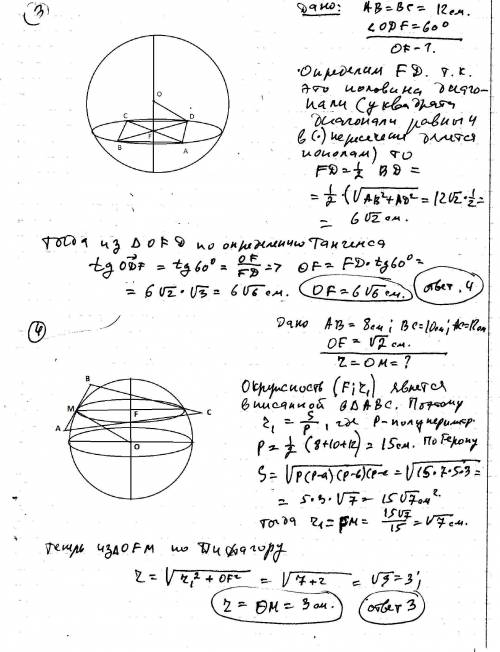 3
Дано: AB=BC=12см.
∠ODF=60°
OF-?
Определим FD. т.к.
это половина диаго-
нали (у квадрата
диагонали равны и
в (·) пересечения делятся
пополам) то
FD=½ BD=
=½·(√AB²+AD²=12√2·½=
=6√2 см.
O
C
D
F
B
A
Тогда из ΔOFD по определению тангенса
tg ODF = tg60° = OF/FD => OF=FD·tg60°=
=6√2·√3=6√6 см. OF=6√6 см. ответ. 4
4
Дано AB=8см; BC=10см; AC=12см
OF=√2 см.
r=OM=?
B
M
F
C
A
O
Окружность (F; r₁) является
вписанной в ΔABC. Поэтому
r₁=S/P, где P-полупериметр
P=½(8+10+12)=15см. По Герону
S=√P(P-a)(P-b)(P-c=√15·7·5·3=
=5·3·√7=15√7см².
тогда r₁=FM=15√7/15=√7см.
Теперь из ΔOFM по Пифагору
r=√r₁²+OF²=√7+2=√9=3;
r=OM=3см. ответ 3